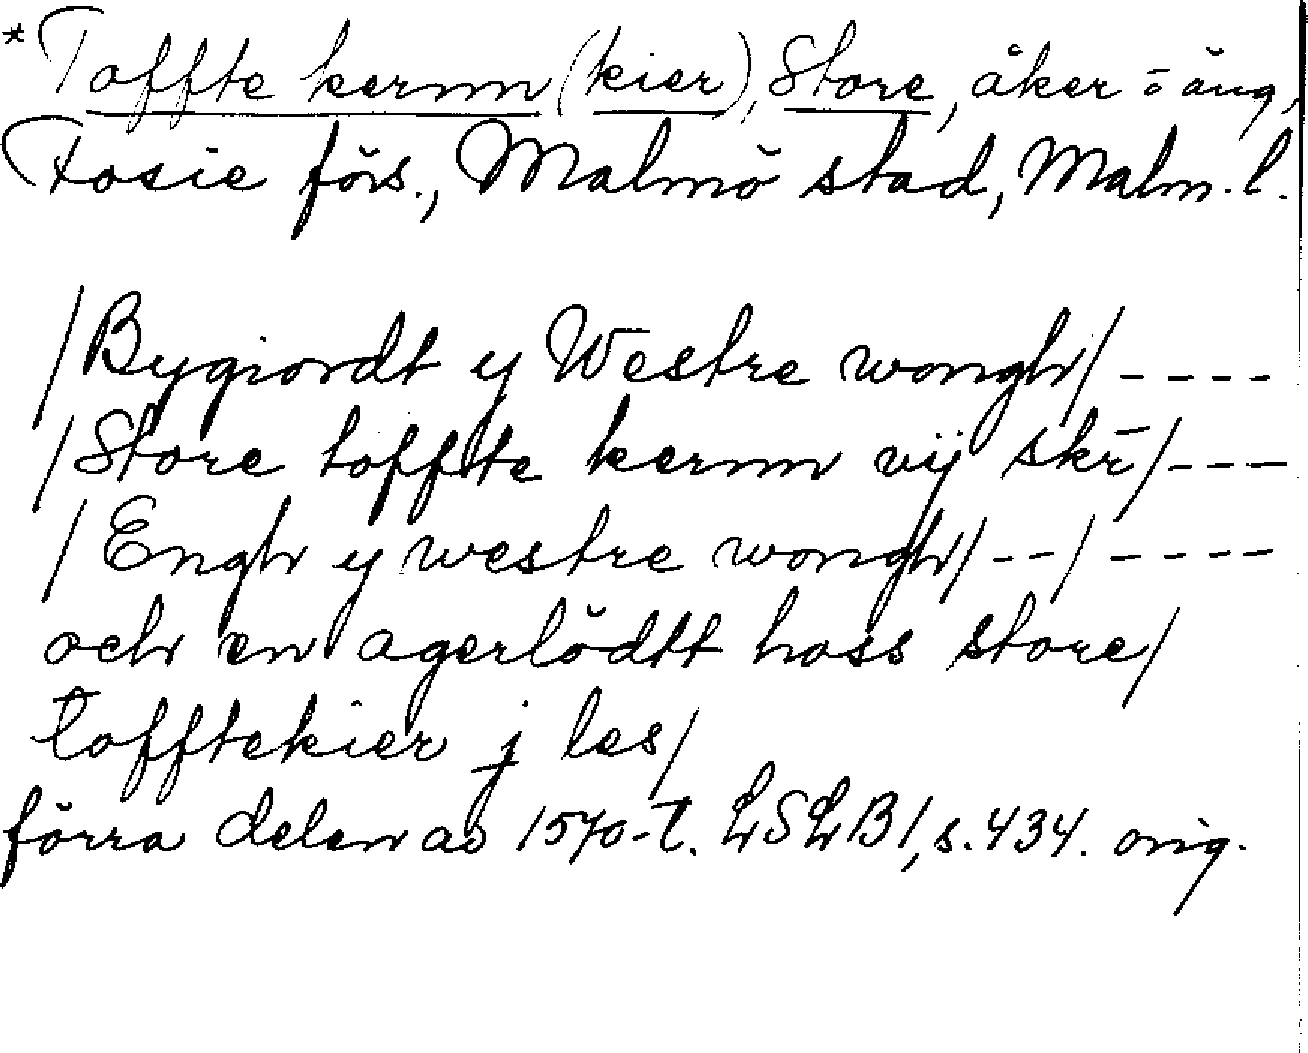 *Toffte kernn (kier), Store, åker o äng,
Fosie förs., Malmö stad, Malm. l.
/Bygiordt y Westre wongh/ ----
/Store toffte kernn vij skr̄/ ---
/Engh y westre wongh/ --/ ----
och en agerlödtt hoss store/
tofftekier j les/
förra delen av 1570-t. LSLB1, s. 434. orig.